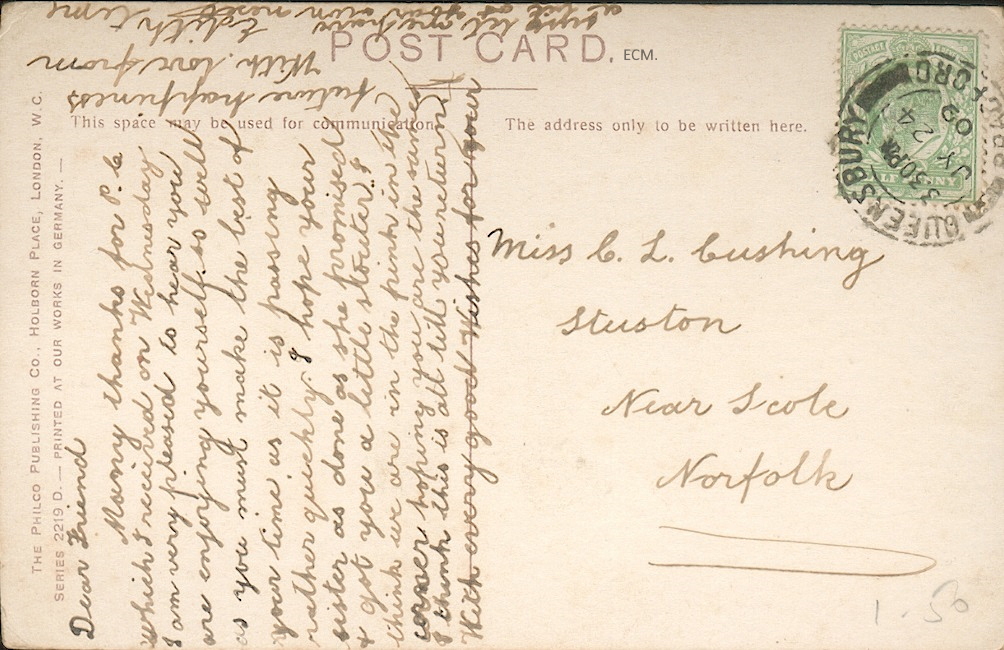 POST CARD. ECM.
This space may be used for communication.
The address only to be written here.
THE PHILCO PUBLISHING CO., HOLBORN PLACE, LONDON, W.C.
SERIES 2219 D. — PRINTED AT OUR WORKS IN GERMANY. —
Dear Friend
Many thanks for P. C
which I received on Wednesday
I am very pleased to hear you
are enjoying yourself so well
as you must make the best of
your time as it is passing
rather quickly. I hope your
sister as done as she promised
& got you a little stouter. I
think we are in the pink in the
corner hoping you are the same
I think this is all till you return
With every good Wishes for your
future happiness
With love from
Edith
QUEENSBURY
BRADFORD
3 30 PM
JY 24
09
POSTAGE
HALFPENNY
Miss C. L. Cushing
Stuston
Near Scole
Norfolk
1-50